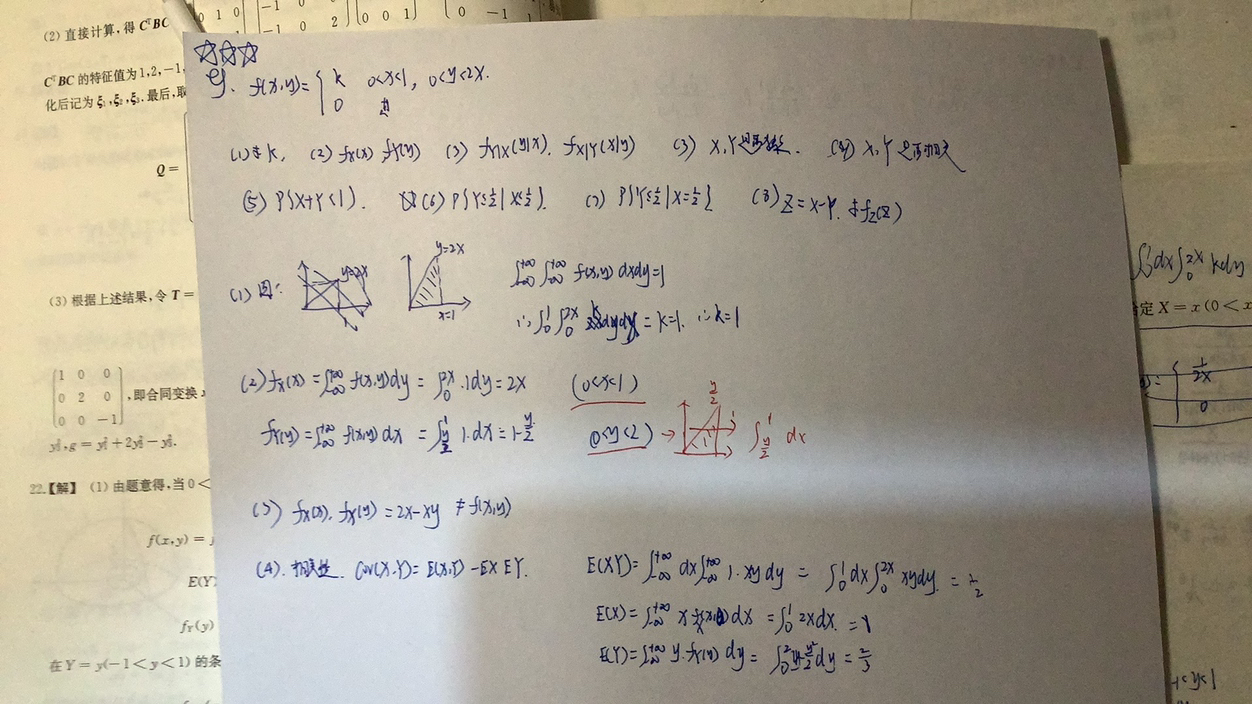 (2) 直接计算,得 CᵀBC
0 1 0
-1 0
-1 0 2
0 0 1
0 -1
CᵀBC 的特征值为 1,2,-1,
化后记为 ξ₁,ξ₂,ξ₃.最后,取
Q =
(3) 根据上述结果,令 T =
1 0 0
0 2 0
0 0 -1
,即合同变换
y₁²,g = y₁² + 2y₂² - y₃².
22.【解】 (1) 由题意得,当 0 <
f(x,y) =
E(Y
f_Y(y)
在 Y = y(-1 < y < 1) 的条
☆☆☆
9. f(x,y)= { k 0<x<1, 0<y<2x.
0 其
(1) 求 k, (2) f_X(x) f_Y(y) (3) f_Y|X(y|x). f_X|Y(x|y) (3) X,Y是否独立. (4) X,Y是否相关
(5) P{X+Y<1}. (6) P{Y≤1/2|X≤1/2}. (7) P{Y≤1/2|X=1/2} (8) Z=X-Y. 求f_Z(z)
(1) 图: y=2x y=2x ∫₋∞^+∞ ∫₋∞^+∞ f(x,y) dxdy=1
x=1 ∴ ∫₀¹ ∫₀^2x k = k=1. ∴ k=1
(2) f_X(x) = ∫₋∞^+∞ f(x,y) dy = ∫₀^2x 1dy = 2x (0<x<1)
f_Y(y) = ∫₋∞^+∞ f(x,y) dx = ∫_y/2^1 1.dx = 1-y/2 (0<y<2) → y/2 ∫_y/2^1 dx
(3) f_X(x). f_Y(y) = 2x-xy ≠ f(x,y)
(4). 相关性. Cov(X,Y) = E(X,Y) - EX EY. E(XY) = ∫₋∞^+∞ dx ∫₋∞^+∞ 1.xy dy = ∫₀¹ dx ∫₀^2x xydy. = 1/2
E(X) = ∫₋∞^+∞ x dx = ∫₀¹ 2xdx. = 1
E(Y) = ∫₋∞^+∞ y.f_Y(y) dy = ∫₀² y-y²/2 dy = 2/3
∫₀¹ dx ∫₀^2x kdy
定 X = x (0 < x
1/2x
0
-1<y<1